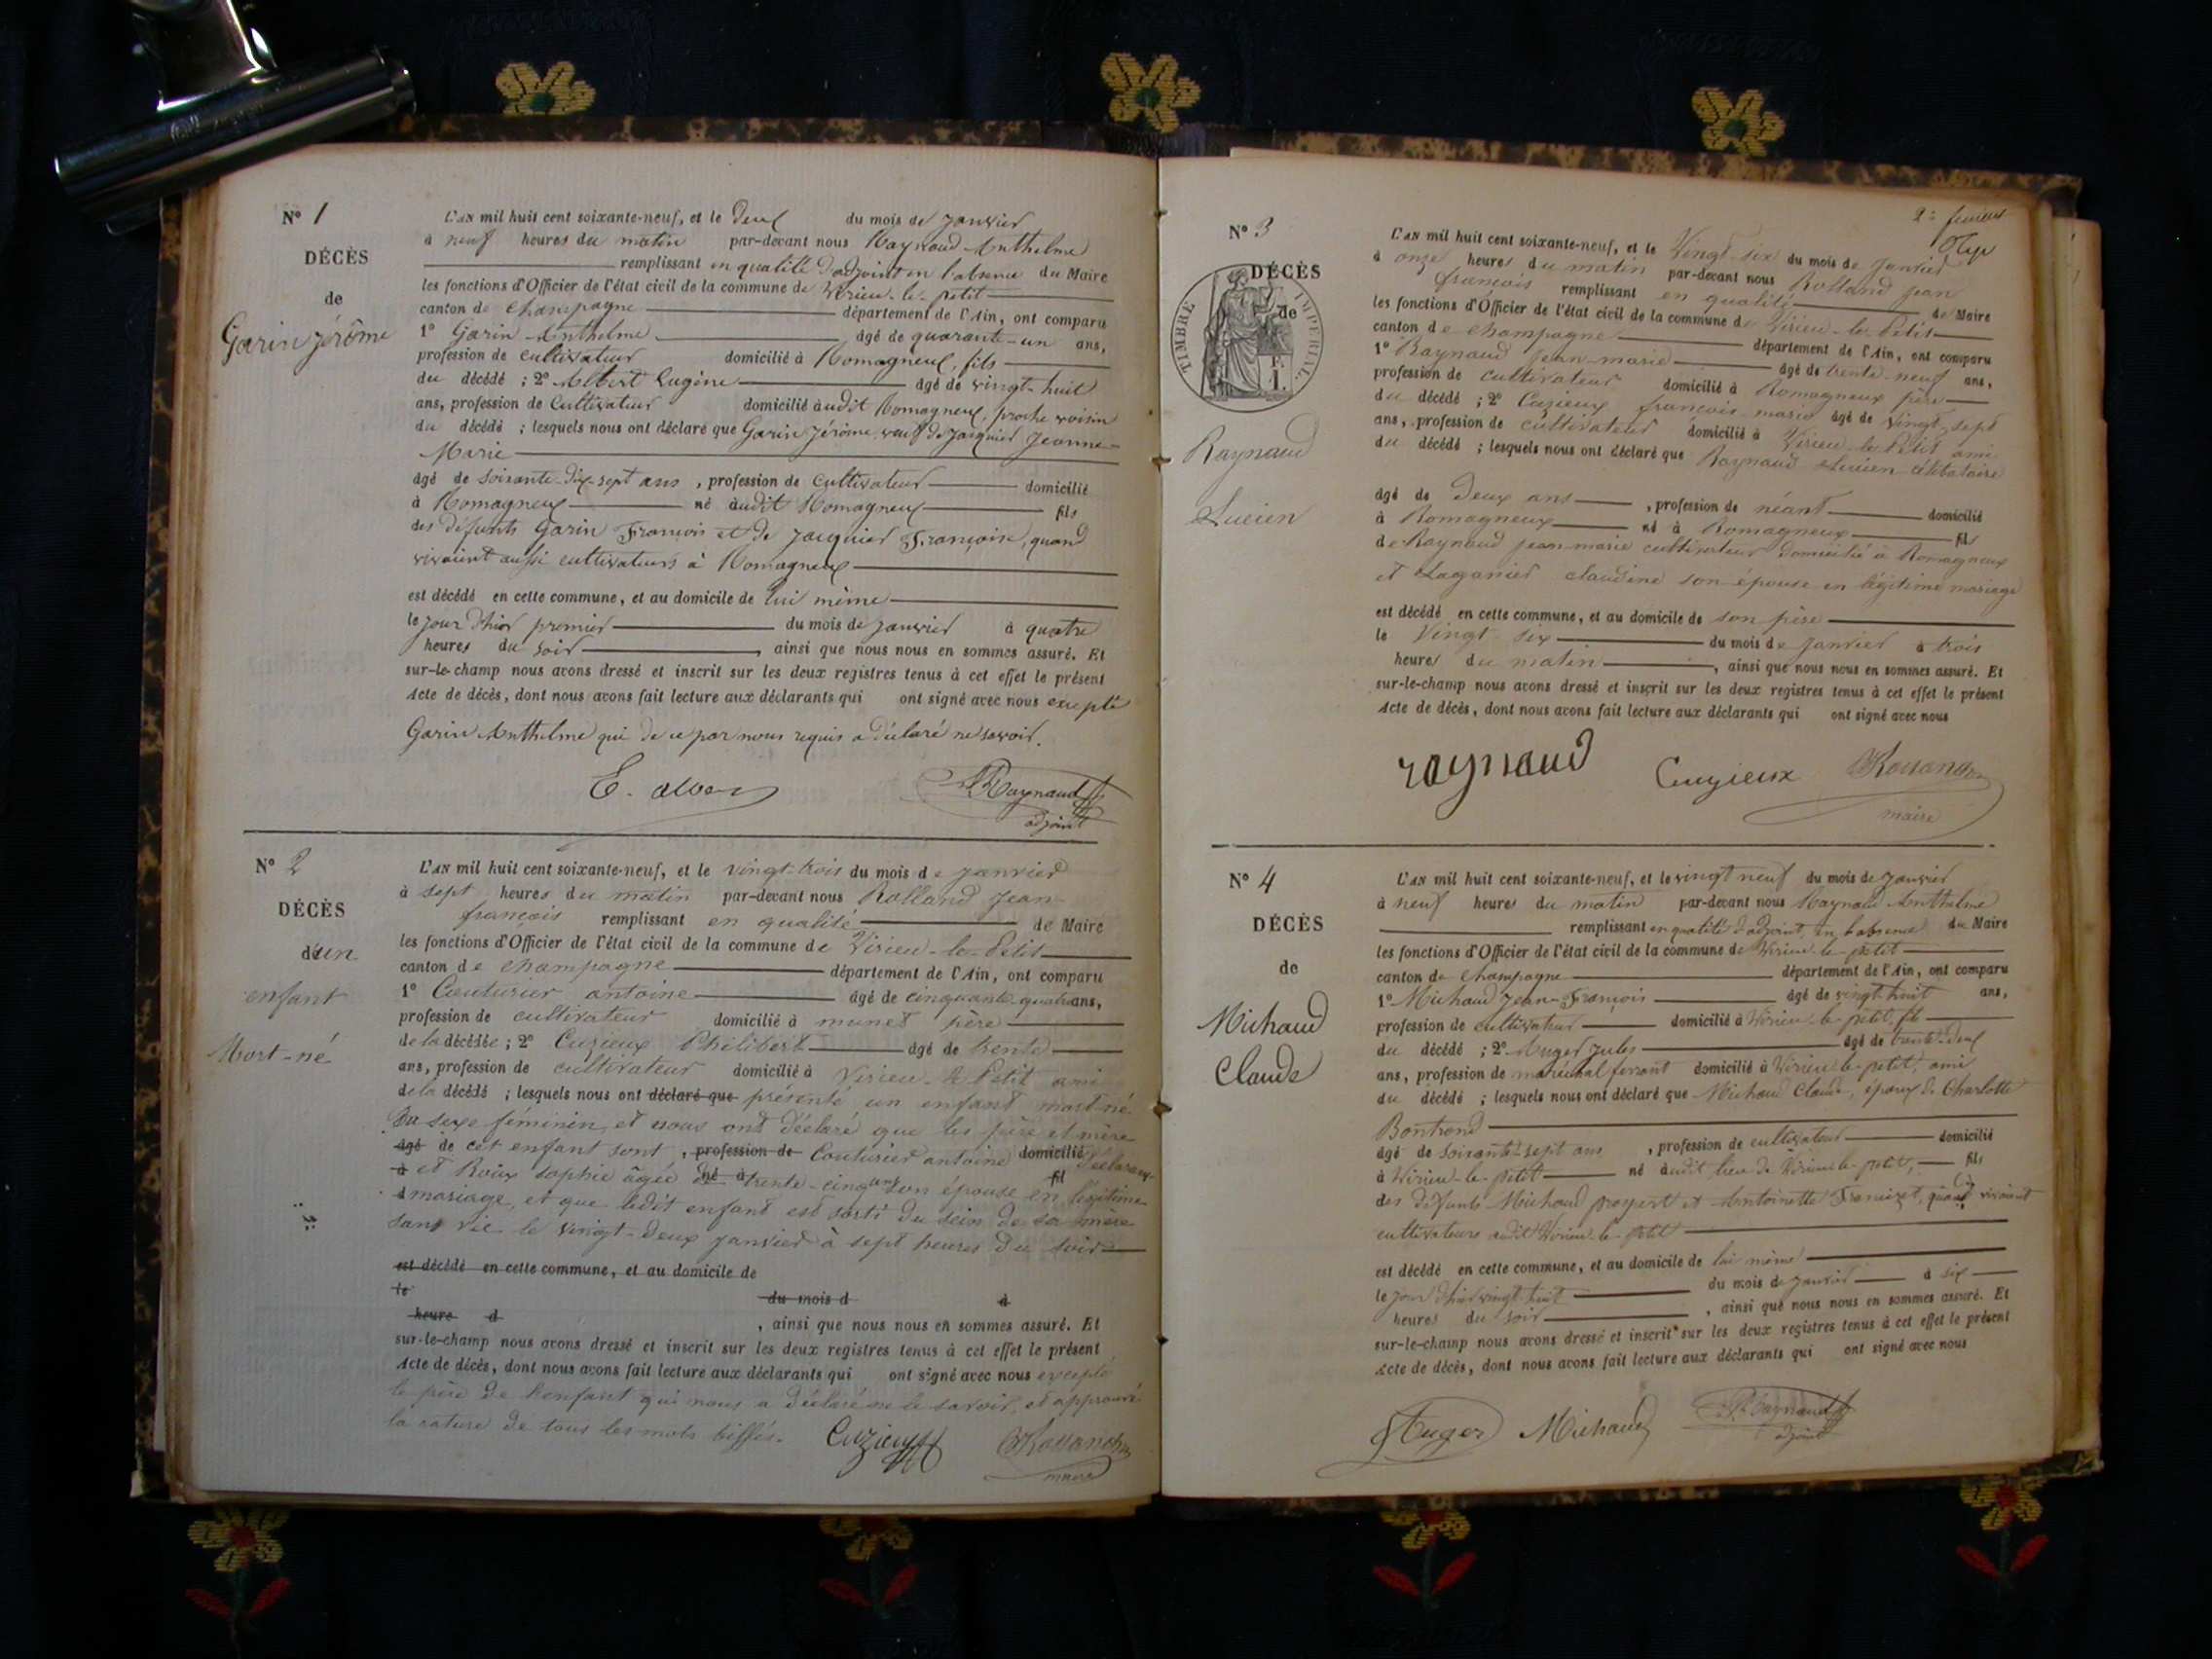 N° 1
DÉCÈS
de
Garin Jérôme
L'AN mil huit cent soixante-neuf, et le deux du mois de janvier
à neuf heures du matin par-devant nous Raynaud Anthelme
remplissant en qualité d'adjoint en l'absence du Maire
les fonctions d'Officier de l'état civil de la commune de Virieu-le-petit
canton de Champagne département de l'Ain, ont comparu
1° Garin Anthelme âgé de quarante-un ans,
profession de cultivateur domicilié à Romagneux, fils
du décédé ; 2° Albert Eugène âgé de vingt-huit
ans, profession de Cultivateur domicilié audit Romagneux, proche voisin
du décédé ; lesquels nous ont déclaré que Garin Jérôme, veuf de Jacquier Jeanne-
Marie
âgé de soixante-dix-sept ans, profession de cultivateur domicilié
à Romagneux né audit Romagneux fils
des défunts Garin François et de Jacquier Françoise, quand
vivaient aussi cultivateurs à Romagneux
est décédé en cette commune, et au domicile de lui même
le jour d'hier premier du mois de janvier à quatre
heures du soir, ainsi que nous nous en sommes assuré. Et
sur-le-champ nous avons dressé et inscrit sur les deux registres tenus à cet effet le présent
Acte de décès, dont nous avons fait lecture aux déclarants qui ont signé avec nous excepté
Garin Anthelme qui de ce par nous requis a déclaré ne savoir.
E. Albert Raynaud
adjoint
N° 2
DÉCÈS
d'un
enfant
Mort-né
L'AN mil huit cent soixante-neuf, et le vingt-trois du mois de janvier
à sept heures du matin par-devant nous Rolland Jean-
françois remplissant en qualité de Maire
les fonctions d'Officier de l'état civil de la commune de Virieu-le-Petit
canton de champagne département de l'Ain, ont comparu
1° Couturier antoine âgé de cinquante quatre ans,
profession de cultivateur domicilié à munet père
de la décédée ; 2° Cuzieux Philibert âgé de trente
ans, profession de cultivateur domicilié à Virieu-le-Petit ami
de la décédé ; lesquels nous ont déclaré que présenté un enfant mort-né
du sexe féminin, et nous ont déclaré que les père et mère
âgé de cet enfant sont, profession de Couturier antoine domicilié déclarant
à et Roux sophie âgée de né à trente-cinq ans son épouse en légitime fil
d mariage, et que ledit enfant est sorti du sein de sa mère
sans vie le vingt-deux janvier à sept heures du soir
est décédé en cette commune, et au domicile de
le du mois d à
heure d, ainsi que nous nous en sommes assuré. Et
sur-le-champ nous avons dressé et inscrit sur les deux registres tenus à cet effet le présent
Acte de décès, dont nous avons fait lecture aux déclarants qui ont signé avec nous excepté
le père de l'enfant qui nous a déclaré ne le savoir, et approuvé
la rature de tous les mots biffés. Cuzieux
maire
2e feuillet
N° 3
DÉCÈS
de
TIMBRE IMPÉRIAL
1 F.
Raynaud
Lucien
L'AN mil huit cent soixante-neuf, et le Vingt-six du mois de janvier
à onze heures du matin par-devant nous Rolland jean
françois remplissant en qualité de Maire
les fonctions d'Officier de l'état civil de la commune de Virieu-le-Petit
canton de champagne département de l'Ain, ont comparu
1° Raynaud jean-marie âgé de trente-neuf ans,
profession de cultivateur domicilié à Romagneux père
du décédé ; 2° Cuzieux françois-marie âgé de vingt-sept
ans, profession de cultivateur domicilié à Virieu-le-Petit ami
du décédé ; lesquels nous ont déclaré que Raynaud Lucien célibataire
âgé de deux ans, profession de néant domicilié
à Romagneux né à Romagneux fils
de Raynaud jean-marie cultivateur domicilié à Romagneux
et Laganier claudine son épouse en légitime mariage
est décédé en cette commune, et au domicile de son père
le Vingt-six du mois de janvier à trois
heures du matin, ainsi que nous nous en sommes assuré. Et
sur-le-champ nous avons dressé et inscrit sur les deux registres tenus à cet effet le présent
Acte de décès, dont nous avons fait lecture aux déclarants qui ont signé avec nous
raynaud Cuzieux
maire
N° 4
DÉCÈS
de
Michaud
Claude
L'AN mil huit cent soixante-neuf, et le vingt neuf du mois de janvier
à neuf heures du matin par-devant nous Raynaud Anthelme
remplissant en qualité d'adjoint, en l'absence du Maire
les fonctions d'Officier de l'état civil de la commune de Virieu-le-petit
canton de Champagne département de l'Ain, ont comparu
1° Michaud Jean-François âgé de vingt-huit ans,
profession de cultivateur domicilié à Virieu-le-petit, fils
du décédé ; 2° Auger Jules âgé de trente-deux
ans, profession de maréchal ferrant domicilié à Virieu-le-petit, ami
du décédé ; lesquels nous ont déclaré que Michaud Claude, époux de Charlotte
Bontrond
âgé de soixante-sept ans, profession de cultivateur domicilié
à Virieu-le-petit né audit lieu de Virieu-le-petit, fils
des défunts Michaud et Antoinette quand vivaient
cultivateurs audit Virieu-le-petit
est décédé en cette commune, et au domicile de lui même
le jour d'hier vingt-huit du mois de janvier à six
heures du soir, ainsi que nous nous en sommes assuré. Et
sur-le-champ nous avons dressé et inscrit sur les deux registres tenus à cet effet le présent
Acte de décès, dont nous avons fait lecture aux déclarants qui ont signé avec nous
Auger Michaud Raynaud
adjoint